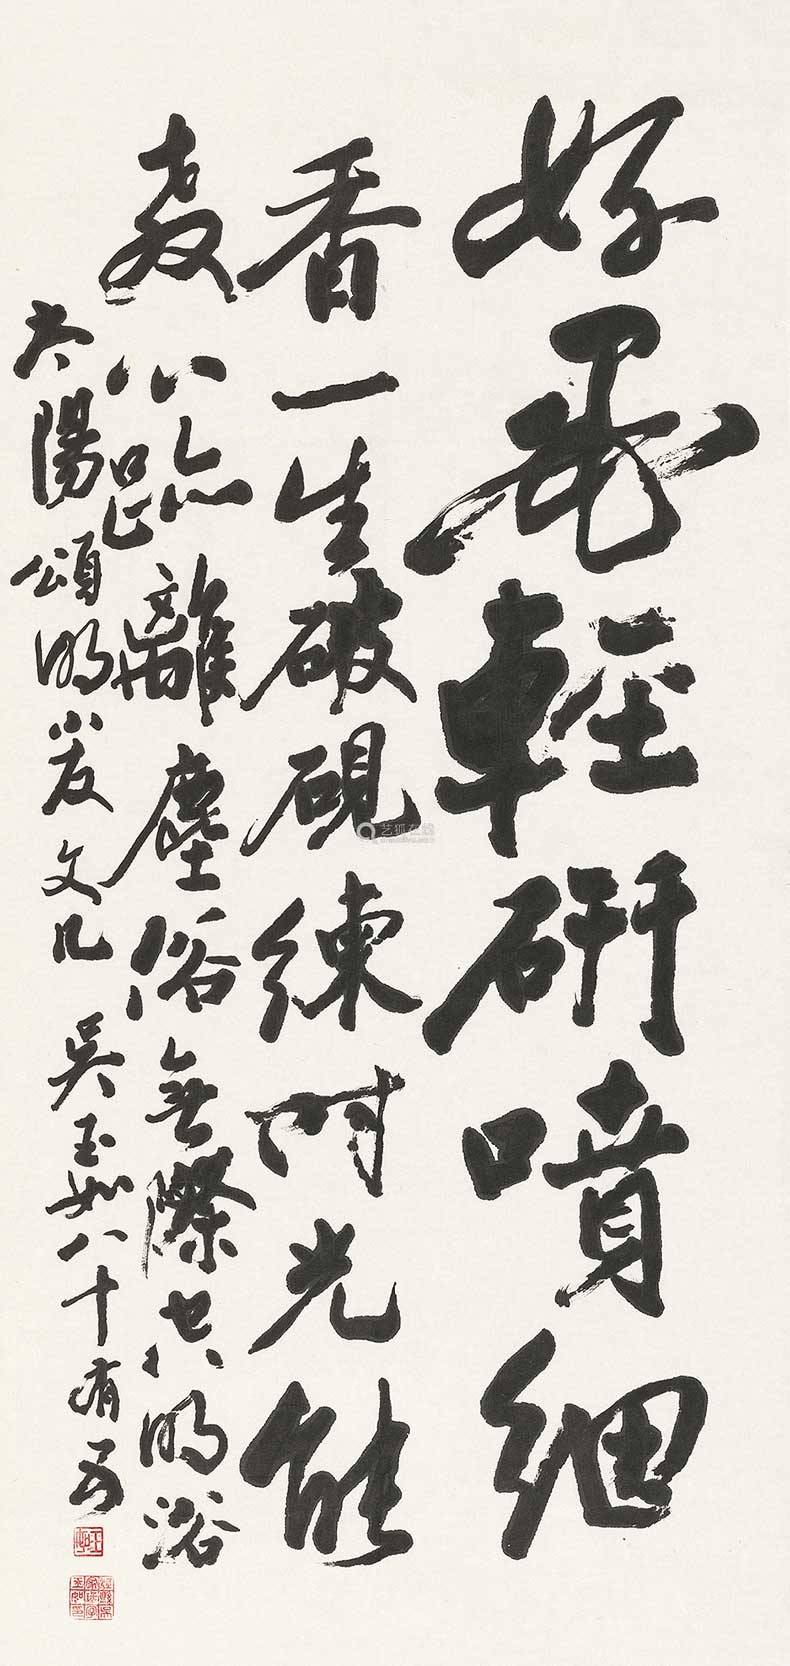 好墨輕研噴細
香一生破硯練時光能
教心跡離塵俗無際空明浴
太陽頌明小友文几 吳玉如八十有五
艺狐在线